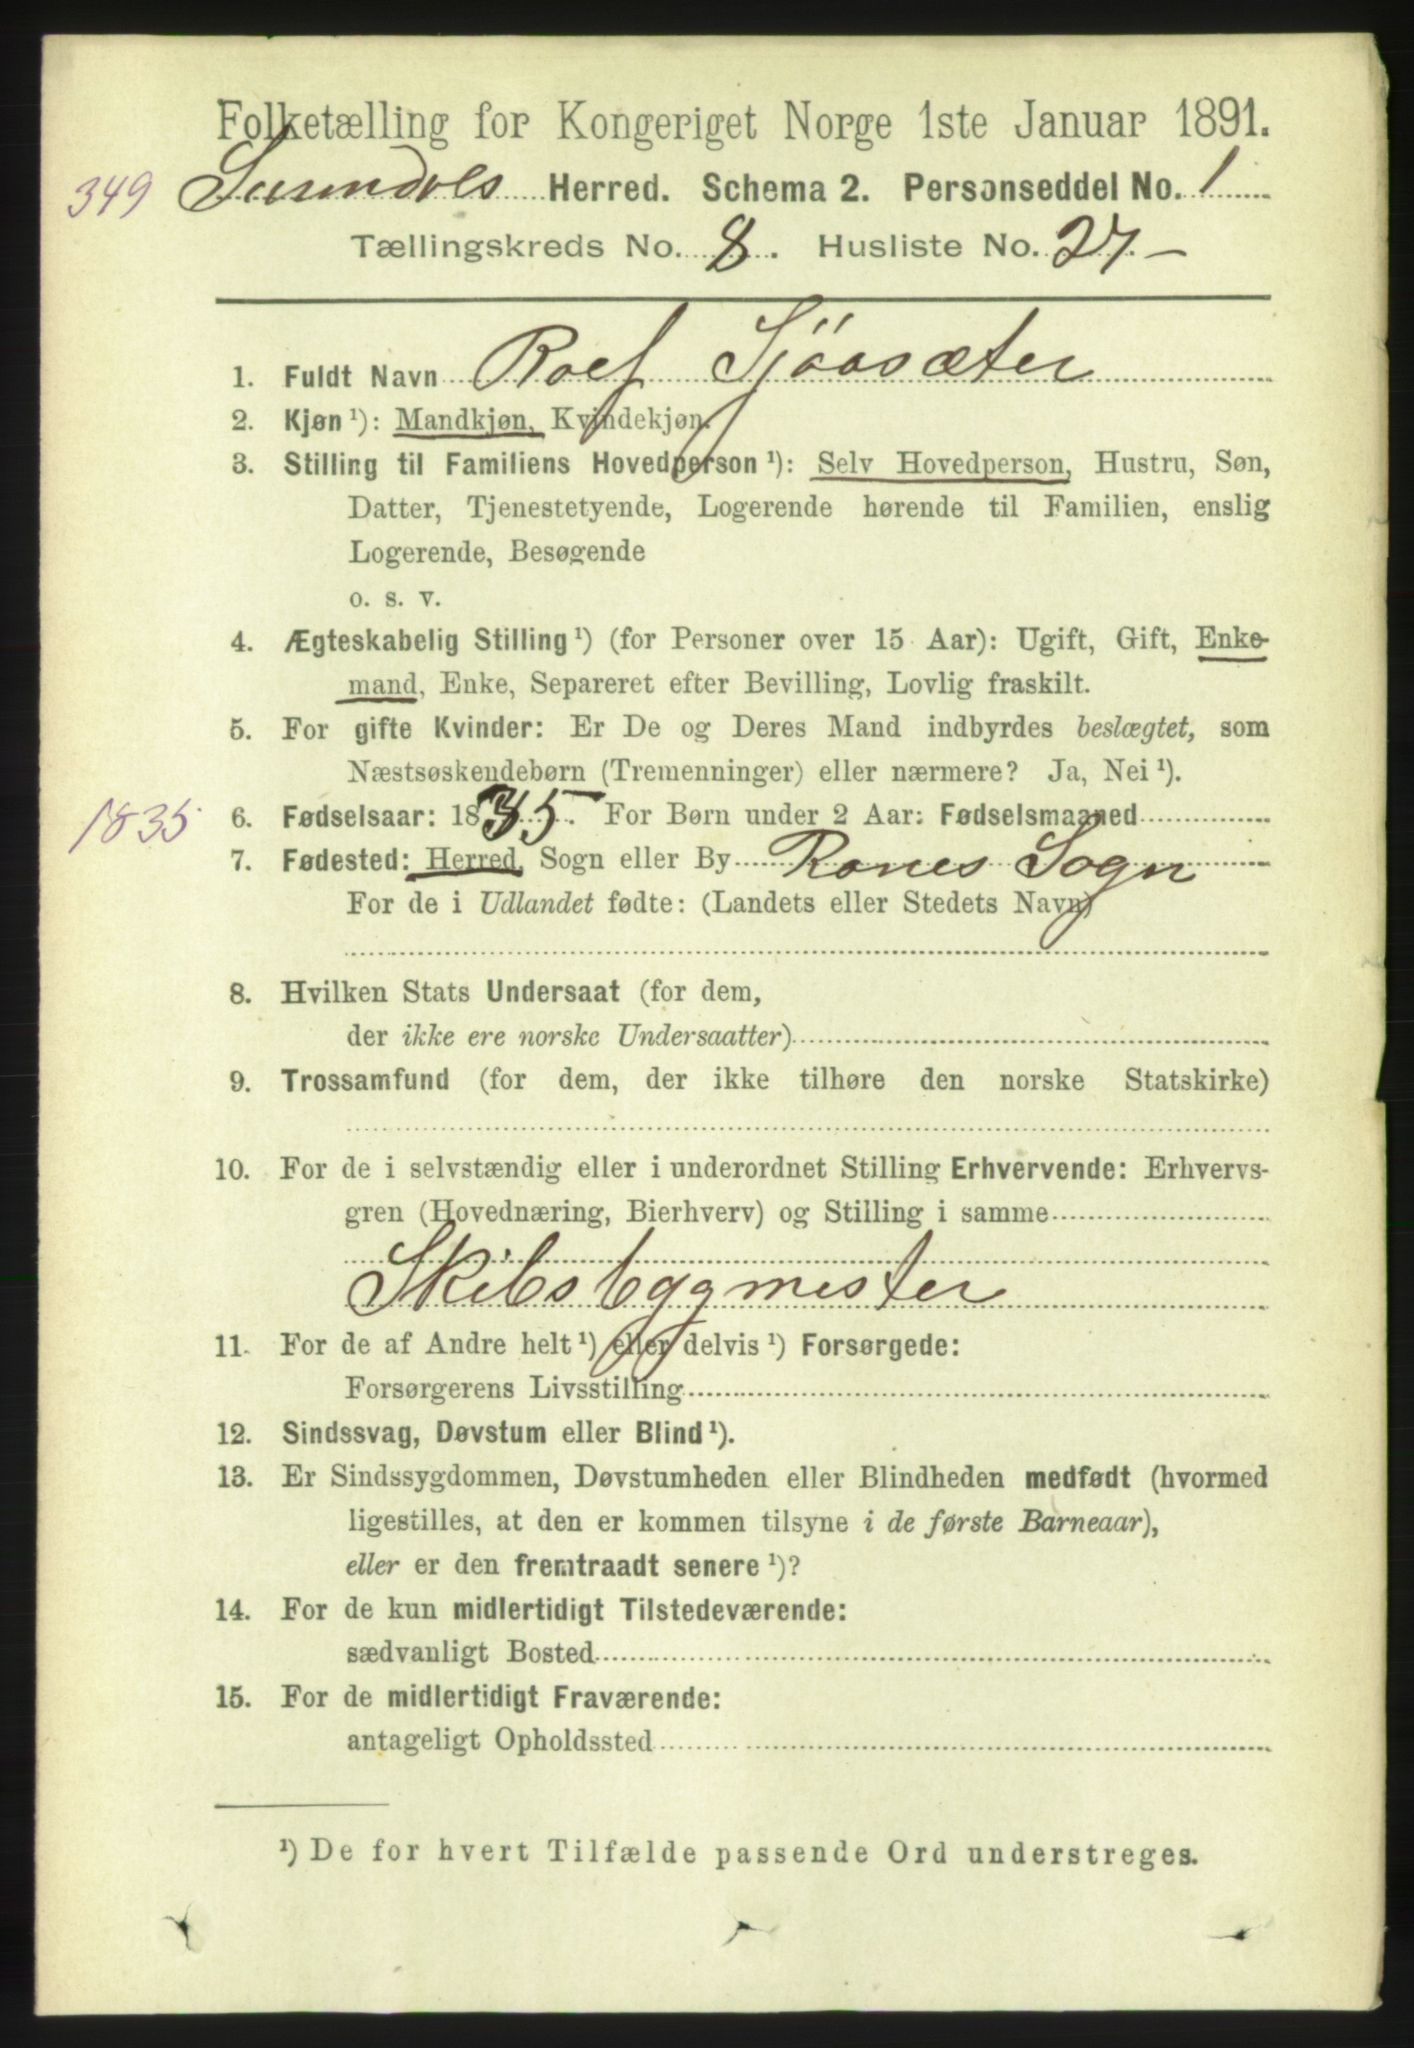 Folketælling for Kongeriget Norge 1ste Januar 1891.
349 Surendals Herred. Schema 2. Personseddel No. 1
Tællingskreds No. 8. Husliste No. 27.
1. Fuldt Navn Roef Sjöasæter
2. Kjøn ¹): Mandkjøn, Kvindekjøn.
3. Stilling til Familiens Hovedperson ¹): Selv Hovedperson, Hustru, Søn,
Datter, Tjenestetyende, Logerende hørende til Familien, enslig
Logerende, Besøgende
o. s. v.
4. Ægteskabelig Stilling ¹) (for Personer over 15 Aar): Ugift, Gift, Enke-
mand, Enke, Separeret efter Bevilling, Lovlig fraskilt.
5. For gifte Kvinder: Er De og Deres Mand indbyrdes beslægtet, som
Næstsøskendebørn (Tremenninger) eller nærmere? Ja, Nei ¹).
1835 6. Fødselsaar: 1835. For Børn under 2 Aar: Fødselsmaaned
7. Fødested: Herred, Sogn eller By Ranes Sogn
For de i Udlandet fødte: (Landets eller Stedets Navn)
8. Hvilken Stats Undersaat (for dem,
der ikke ere norske Undersaatter)
9. Trossamfund (for dem, der ikke tilhøre den norske Statskirke)
10. For de i selvstændig eller i underordnet Stilling Erhvervende: Erhvervs-
gren (Hovednæring, Bierhverv) og Stilling i samme
Skibsbyggmester
11. For de af Andre helt ¹) eller delvis ¹) Forsørgede:
Forsørgerens Livsstilling
12. Sindssvag, Døvstum eller Blind ¹).
13. Er Sindssygdommen, Døvstumheden eller Blindheden medfødt (hvormed
ligestilles, at den er kommen tilsyne i de første Barneaar),
eller er den fremtraadt senere ¹)?
14. For de kun midlertidigt Tilstedeværende:
sædvanligt Bosted
15. For de midlertidigt Fraværende:
antageligt Opholdssted
¹) De for hvert Tilfælde passende Ord understreges.